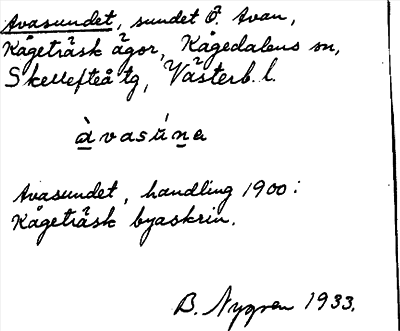 Avasundet, sundet Ö. Avan,
Kågeträsk ägor, Kågedalens sn,
Skellefteå tg, Västerb. l.
àvasúna
Avasundet, handling 1900:
Kågeträsk byaskrin.
B. Nygren 1933.